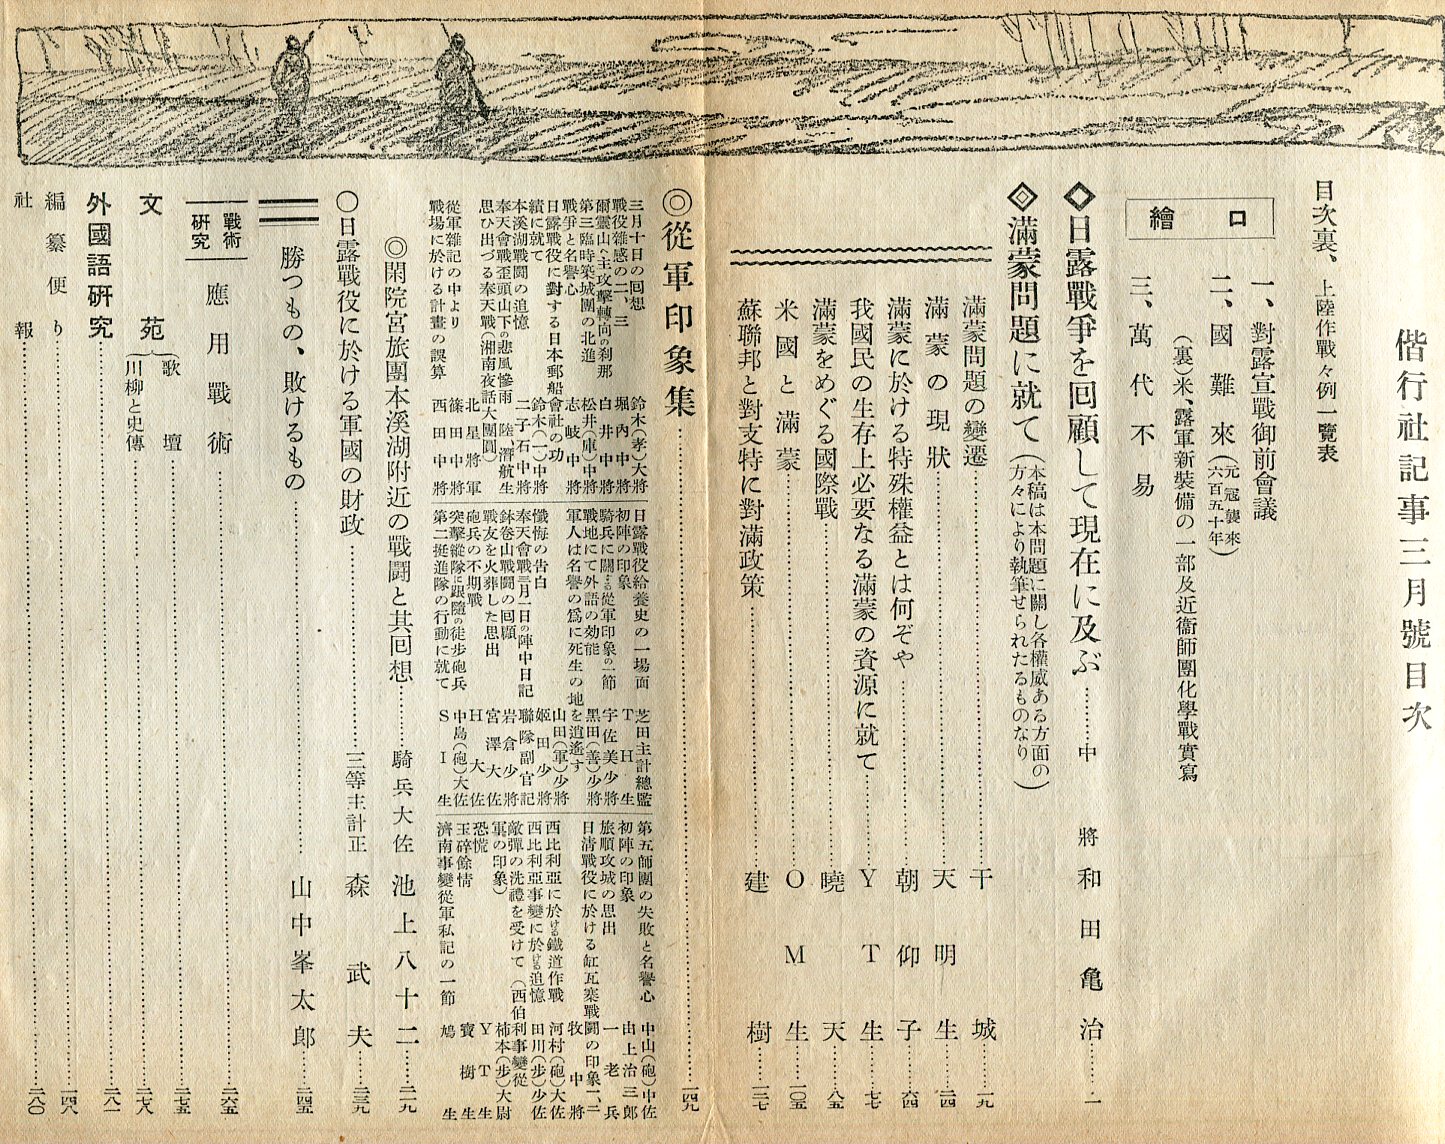 偕行社記事三月號目次
目次裏、上陸作戰々例一覽表
口繪
一、對露宣戰御前會議
二、國難來(元寇襲來六百五十年)
(裏)米、露軍新裝備の一部及近衞師團化學戰實寫
三、萬代不易
◇日露戰爭を回顧して現在に及ぶ……中將 和田亀治……一
◇滿蒙問題に就て(本稿は本問題に關し各權威ある方面の方々により執筆せられたるものなり)
滿蒙問題の變遷……干城……一九
滿蒙の現狀……天明生……三四
滿蒙に於ける特殊權益とは何ぞや……朝仰子……六四
我國民の生存上必要なる滿蒙の資源に就て……YT生……七七
滿蒙をめぐる國際戰……曉天……八五
米國と滿蒙……OM生……一〇五
蘇聯邦と對支特に對滿政策……建樹……一二七
◎從軍印象集……一四九
三月十日の回想 鈴木(孝)大將
戰役雜感の二、三 堀內中將
爾靈山、主攻擊轉向の刹那 白井中將
第三臨時築城團の北進 松井(庫)中將
戰爭と名譽心 志岐中將
日露戰役に對する日本郵船會社の功績に就て 鈴木(一)中將
本溪湖戰鬪の追憶 二子石中將
奉天會戰歪頭山下の悲風慘雨 陸、潛航生
思ひ出づる奉天戰(湘南夜話大團圓) 北星將軍
從軍雜記の中より 篠田中將
戰場に於ける計畫の誤算 西田中將
日露戰役給養史の一場面 芝田主計總監
初陣の印象 TH生
騎兵に關する從軍印象の一節 宇佐美少將
戰地にて外語の効能 黑田(善)少將
軍人は名譽の爲に死生の地を逍遙す 山田(軍)少將
懺悔の告白 姬田少將
奉天會戰三月一日の陣中日記 聯隊副官記
鉢卷山戰鬪の回顧 岩倉少將
戰友を火葬した思出 宮澤大佐
砲兵の不期戰 H大佐
突擊縱隊に跟隨の徒步砲兵 中島(砲)大佐
第二挺進隊の行動に就て SI生
第五師團の失敗と名譽心 中山(砲)中佐
初陣の印象 由上治三郎
旅順攻城の思出 一老兵
日淸戰役に於ける缸瓦寨戰鬪の印象一、二 牧中將
西比利亞に於ける鐵道作戰 河村(砲)大佐
西比利亞事變に於ける追憶 田川(步)少佐
敵彈の洗禮を受けて(西伯利事變從軍の印象) 柿本(步)大尉
恐慌 YT生
玉碎餘情 寶樹生
濟南事變從軍私記の一節 鳩生
◎閑院宮旅團本溪湖附近の戰鬪と其回想……騎兵大佐 池上八十二……二一九
〇日露戰役に於ける軍國の財政……三等主計正 森武夫……二三九
勝つもの、敗けるもの……山中峯太郎……二四五
戰術硏究 應用戰術……二六五
文苑{歌壇……二七五
川柳と史傳……二七八
外國語硏究……二八一
編纂便り……一四八
社報……二八〇